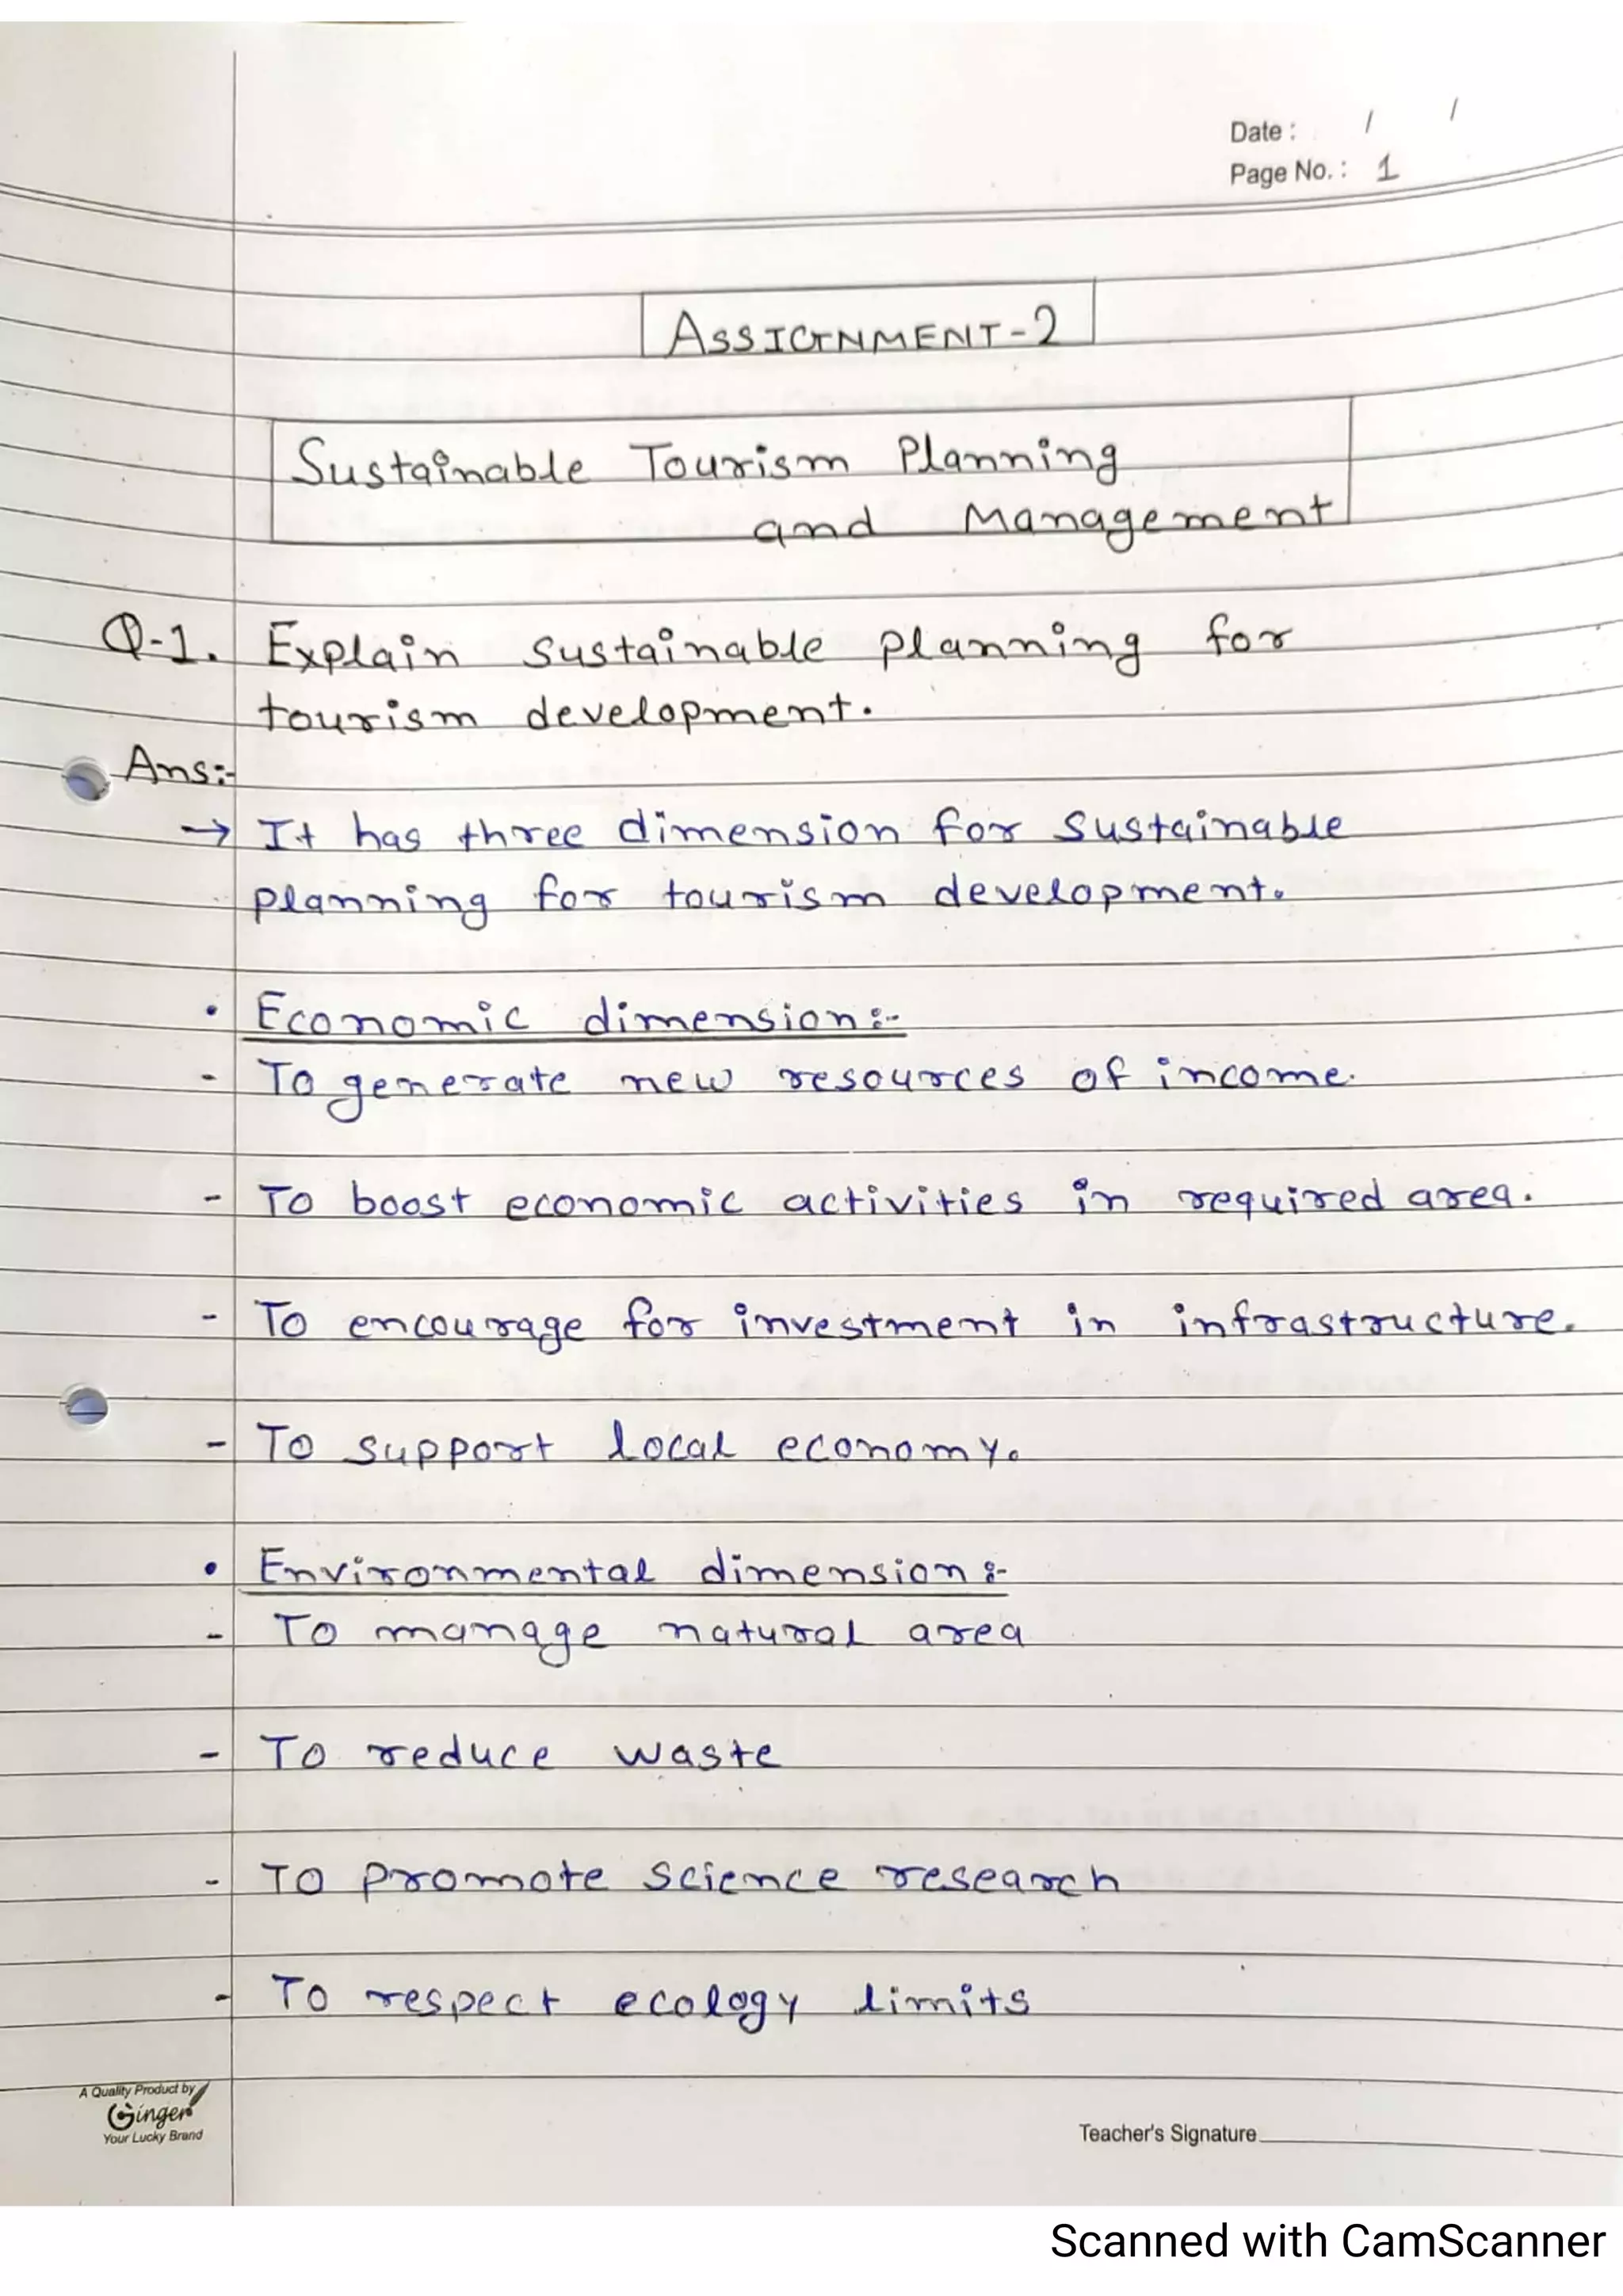 Date : / /
Page No. : 1
ASSIGNMENT-2
Sustainable Tourism Planning
and Management
Q-1. Explain sustainable planning for
tourism development.
Ans:-
→ It has three dimension for sustainable
planning for tourism development.
• Economic dimension:-
- To generate new resources of income.
- To boost economic activities in required area.
- To encourage for investment in infrastructure.
- To support local economy.
• Environmental dimension:-
- To manage natural area
- To reduce waste
- To promote science research
- To respect ecology limits
A Quality Product by
Ginger
Your Lucky Brand
Teacher's Signature
Scanned with CamScanner